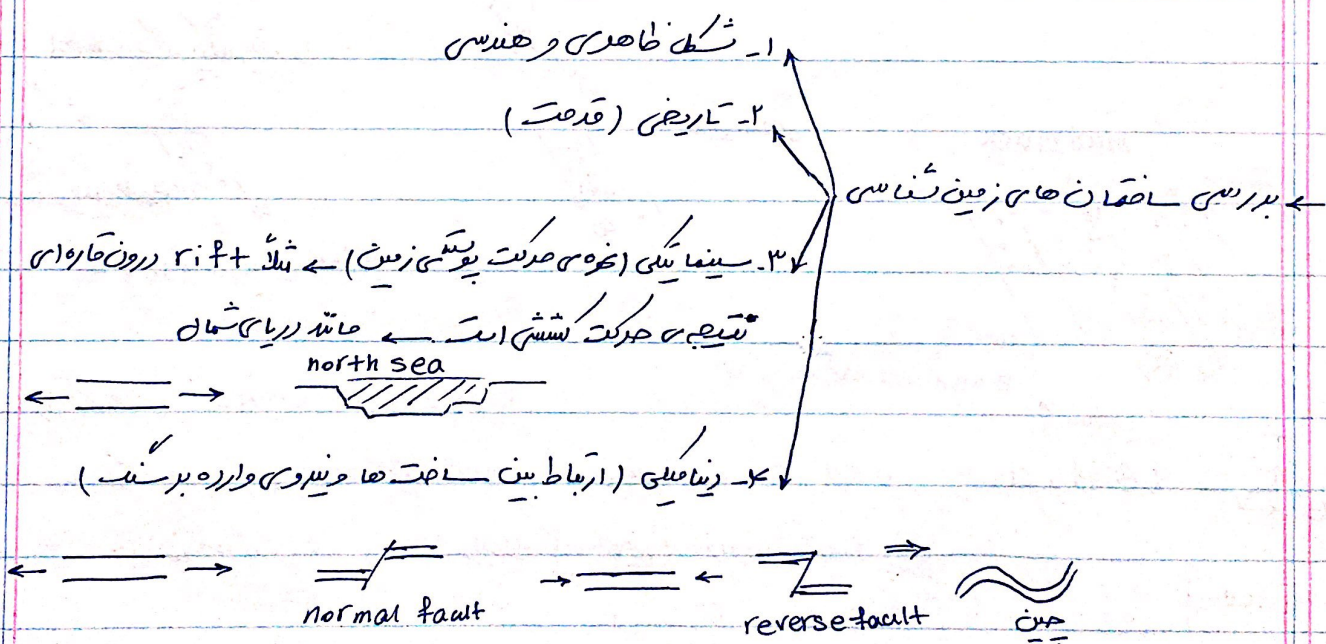 ← بررسی ساختمان های زمین شناسی
۱- شکل ظاهری و هندسی
۲- تاریخی (قدمت)
۳- سینماتیکی (نحوه ی حرکت پوسته ی زمین) ← مثلاً rift درون قاره ای
نتیجه ی حرکت کششی است ← مانند دریای شمال
north sea
۴- دینامیکی (ارتباط بین ساخت ها و نیروی وارده بر سنگ)
normal fault
reverse fault
چین